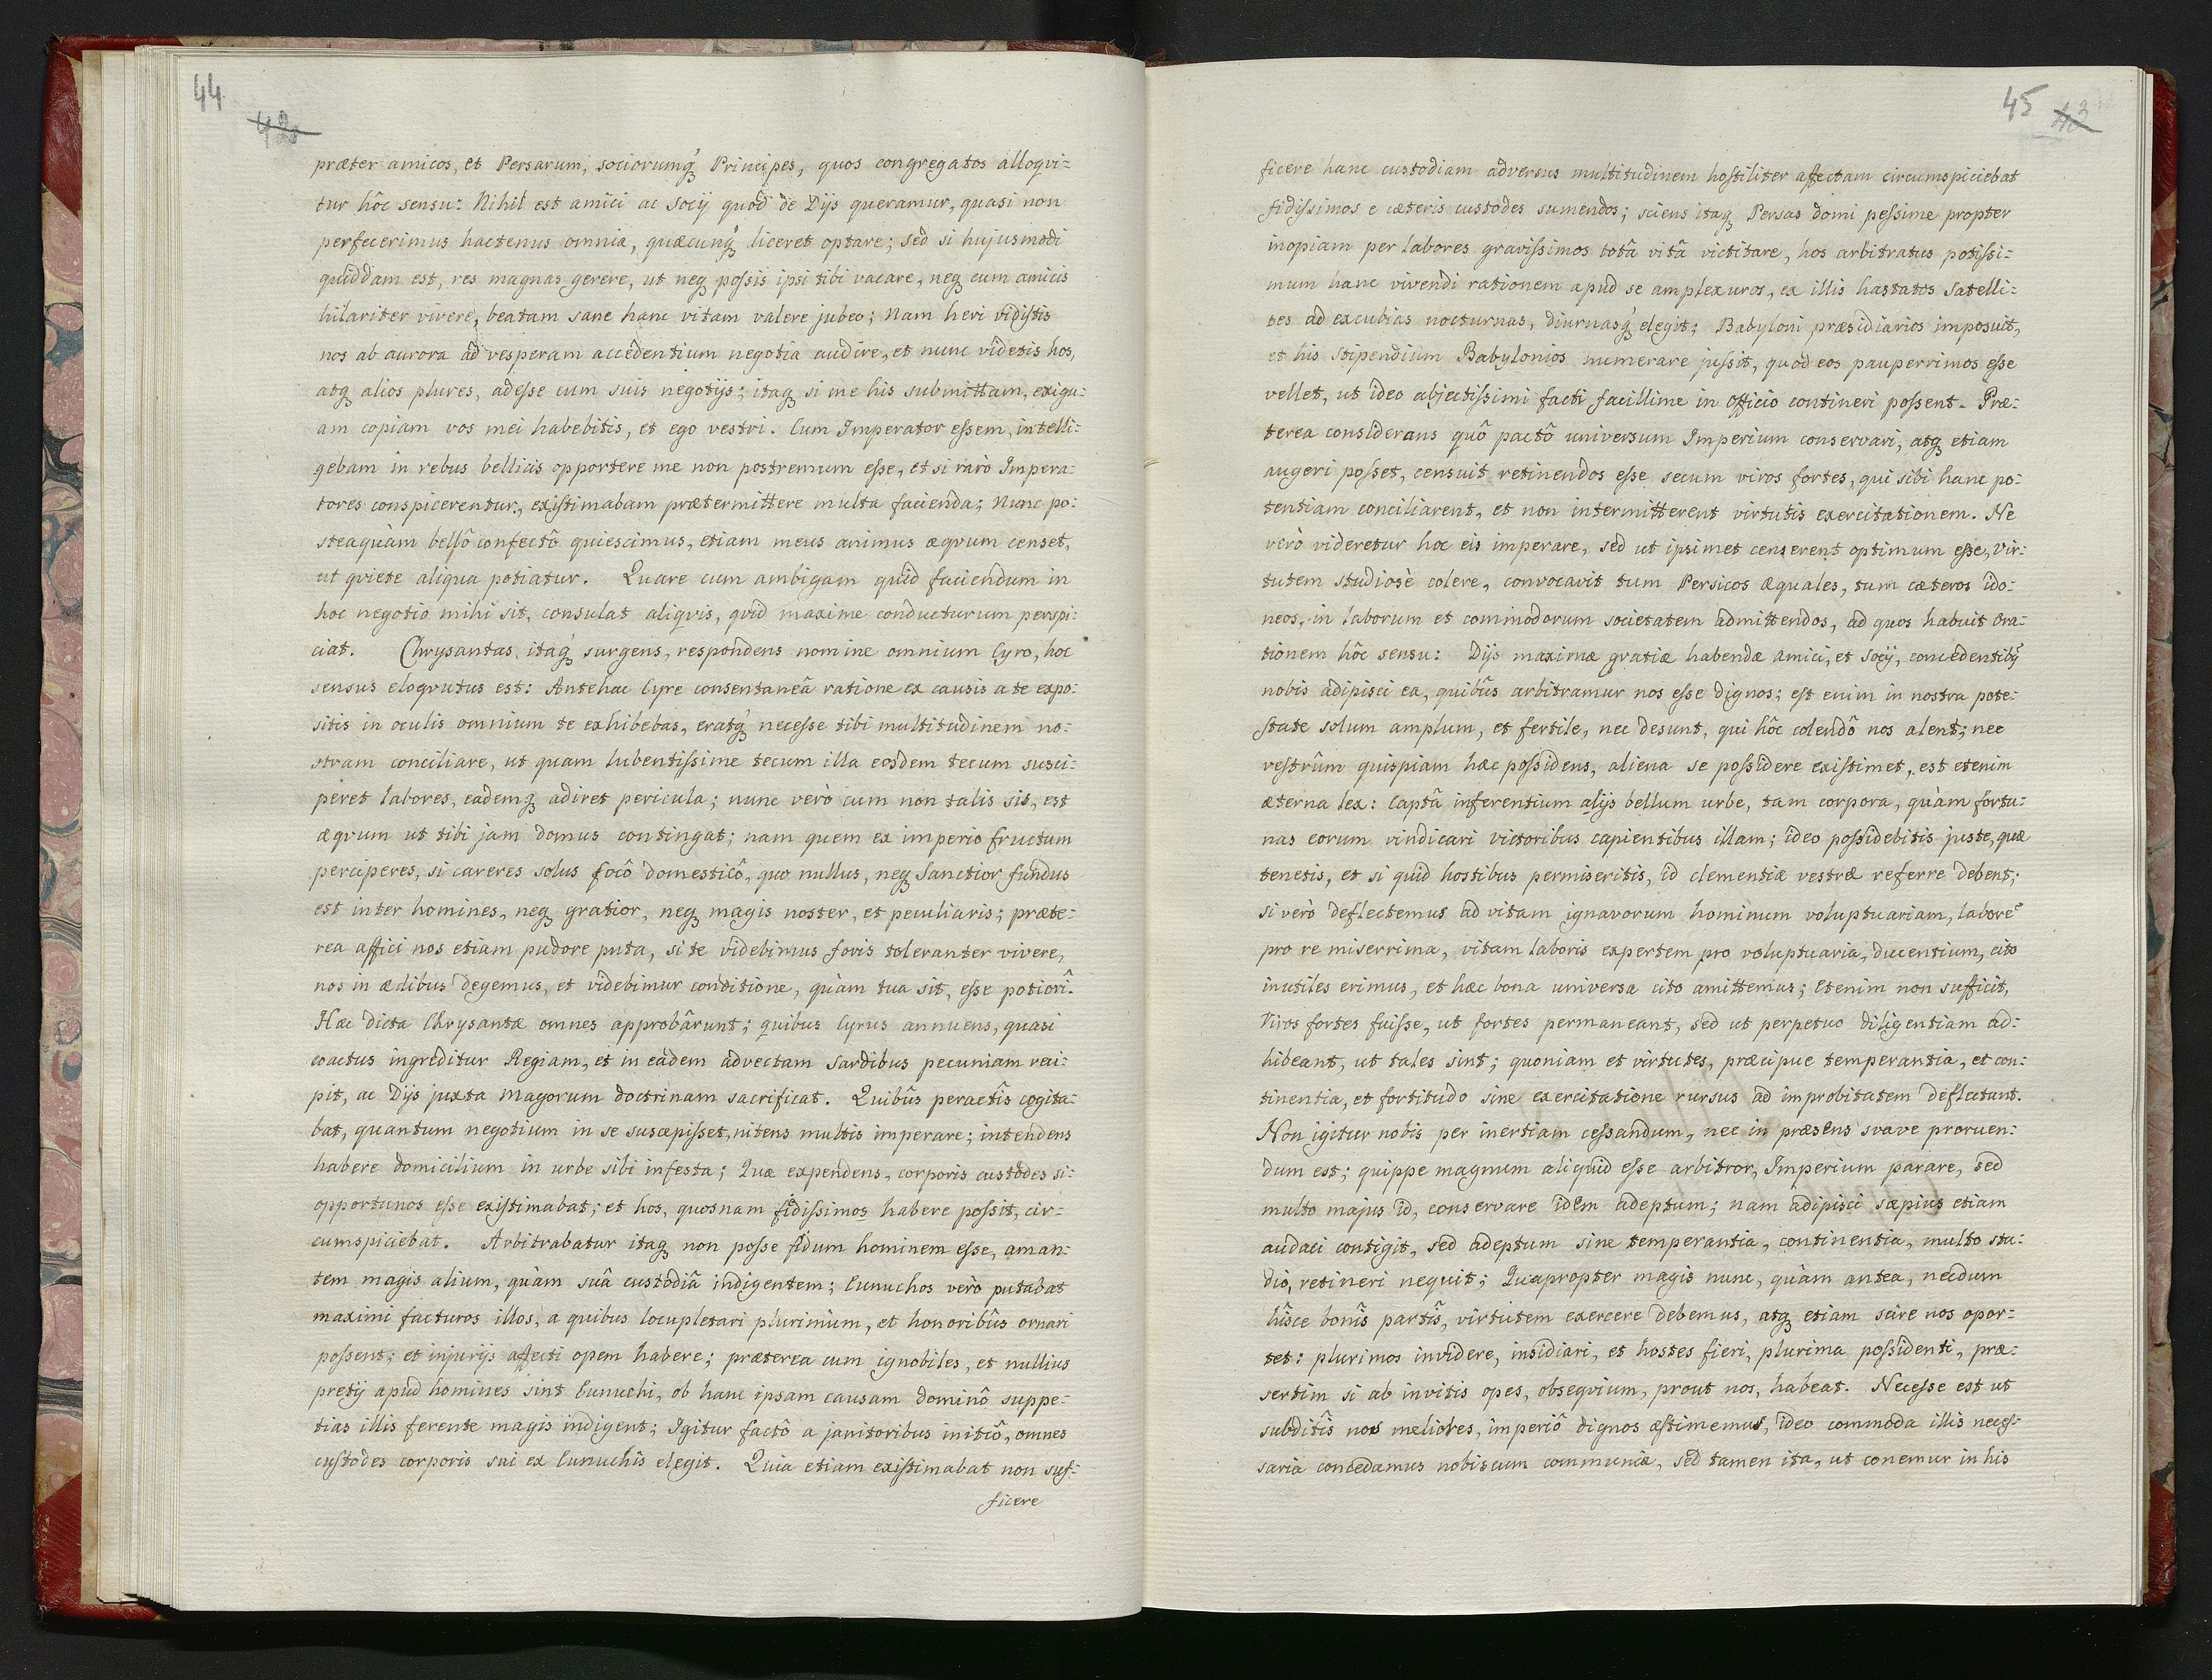 44
42
præter amicos, et Persarum, sociorumq́ Principes, quos congregatos alloqvi=
tur hôc sensu: Nihil est amici ac Socÿ quod de Dÿs queramur, quasi non
perfecerimus hactenus omnia, quæcunq́ liceret optare; sed si hujusmodi
quiddam est, res magnas gerere, ut neq possis ipsi tibi vacare, neq cum amicis
hilariter vivere, beatam sane hanc vitam valere jubeo; Nam heri vidistis
nos ab aurora ad vesperam accedentium negotia audire, et nunc videtis hos,
atq alios plures, adesse cum suis negotÿs; itaq si me his submittam, exigu=
am copiam vos mei habebitis, et ego vestri. Cum Imperator essem, intelli=
gebam in rebus bellicis opportere me non postremum esse, et si rarò Impera=
tores conspicerentur, existimabam prætermittere multa facienda; Nunc po=
steaquàm bellô confectô quiescimus, etiam meus animus æqvum censet,
ut qviete aliqua potiatur. Quare cum ambigam quid faciendum in
hoc negotio mihi sit, consulat aliqvis, qvid maxime conducturum perspi=
ciat. Chrysantas itaq́ surgens, respondens nomine omnium Cyro, hoc
sensus eloqvutus est: Antehac Cyre consentaneâ ratione ex causis a te expo=
sitis in oculis omnium te exhibebas, eratq́ necesse tibi multitudinem no=
stram conciliare, ut quam lubentissime tecum illa eosdem tecum susci=
peret labores, eademq adiret pericula; nunc verò cum non talis sis, est
æqvum ut tibi jam domus contingat; nam quem ex imperio fructum
perciperes, si careres solus focô domesticô, quo nullus, neq Sanctior fundus
est inter homines, neq gratior, neq magis noster, et peculiaris; præte=
rea affici nos etiam pudore puta, si te videbimus foris toleranter vivere,
nos in ædibus degemus, et videbimur conditione, quàm tua sit, esse potiorî.
Hæc dicta Chrysantæ omnes approbârunt; quibus Cyrus annuens, quasi
coactus ingreditur Regiam, et in eadem advectam Sardibus pecuniam reci=
pit, ac Dÿs juxta Magorum doctrinam sacrificat. Quibûs peractîs cogita=
bat, quantum negotium in se suscepisset, nitens multis imperare; intendens
habere domicilium in urbe sibi infesta; Quæ expendens, corporis custodes si=
opportunos esse existimabat; et hos, quosnam fidissimos habere possit, cir=
cumspiciebat. Arbitrabatur itaq non posse fidum hominem esse, aman=
tem magis alium, quàm suâ custodiâ indigentem; Eunuchos verò putabat
maximi facturos illos, a quibus locupletari plurimùm, et honoribûs ornari
possent; et injurÿs affecti opem habere; præterea cum ignobiles, et nullius
pretÿ apud homines sint Eunuchi, ob hanc ipsam causam dominô suppe=
tias illis ferente magis indigent; Igitur factô a janitoribus initiô, omnes
custodes corporis sui ex Eunuchis elegit. Quia etiam existimabat non suf=
ficere
45
43
ficere hanc custodiam adversus multitudinem hostiliter affectam circumspiciebat
fidissimos e cæteris custodes sumendos; sciens itaq Persas domi pessime propter
inopiam per labores gravissimos totâ vitâ victitare, hos arbitratus potissi=
mum hanc vivendi rationem apud se amplexuros, ex illis hastatos Satelli=
tes ad excubias nocturnas, diurnasq́ elegit; Babyloni præsidiarios imposuit,
et his stipendium Babylonios numerare jussit, quod eos pauperrimos esse
vellet, ut ideo abjectissimi facti facillime in officio contineri possent. Præ=
terea considerans quô pactô universum Imperium conservari, atq etiam
augeri posset, censuit retinendos esse secum viros fortes, qui sibi hanc po=
tentiam conciliarent, et non intermitterent virtutis exercitationem. Ne
verò videretur hoc eis imperare, sed ut ipsimet censerent optimum esse, Vir=
tutem studiosè colere, convocavit tum Persicos æquales, tum cæteros ido=
neos, in laborum et commodorum societatem admittendos, ad quos habuit Ora=
tionem hôc sensu: Dÿs maximæ gratiæ habendæ Amici, et Socÿ, concedentibq́
nobis adipisci ea, quibûs arbitramur nos esse dignos; est enim in nostra pote=
state solum amplum, et fertile, nec desunt, qui hôc colendô nos alent; nec
vestrûm quispiam hæc possidens, aliena se possidere existimet, est etenim
æterna lex: Captâ inferentium alÿs bellum urbe, tam corpora, quàm fortu=
nas eorum vindicari victoribus capientibus illam; ideo possidebitis juste, quæ
tenetis, et si quid hostibus permiseritis, id clementiæ vestræ referre debent;
si verò deflectemus ad vitam ignavorum hominum voluptuariam, laborē
pro re miserrima, vitam laboris expertem pro voluptuaria, ducentium, cito
inutiles erimus, et hæc bona universa cito amittemus; Etenim non sufficit,
Viros fortes fuisse, ut fortes permaneant, sed ut perpetuo diligentiam ad=
hibeant, ut tales sint; quoniam et virtutes, præcipue temperantia, et con=
tinentia, et fortitudo sine exercitatione rursus ad improbitatem deflectunt.
Non igitur nobis per inertiam cessandum, nec in præsens svave proruen=
dum est; quippe magnum aliquid esse arbitror, Imperium parare, sed
multo majus id, conservare idem adeptum; nam adipisci sæpius etiam
audaci contigit, sed adeptum sine temperantia, continentia, multo stu=
dio, retineri nequit; Quapropter magis nunc, quàm antea, necdum
hîsce bonîs partîs, virtutem exercere debemus, atq etiam scire nos opor=
tet: plurimos invidere, insidiari, et hostes fieri, plurima possidenti, præ=
sertim si ab invitis opes, obseqvium, prout nos, habeat. Necesse est ut
subditîs nos meliores, imperiô dignos æstimemus, ideo commoda illis neces=
saria concedamus nobiscum communia, sed tamen ita, ut conemur in his